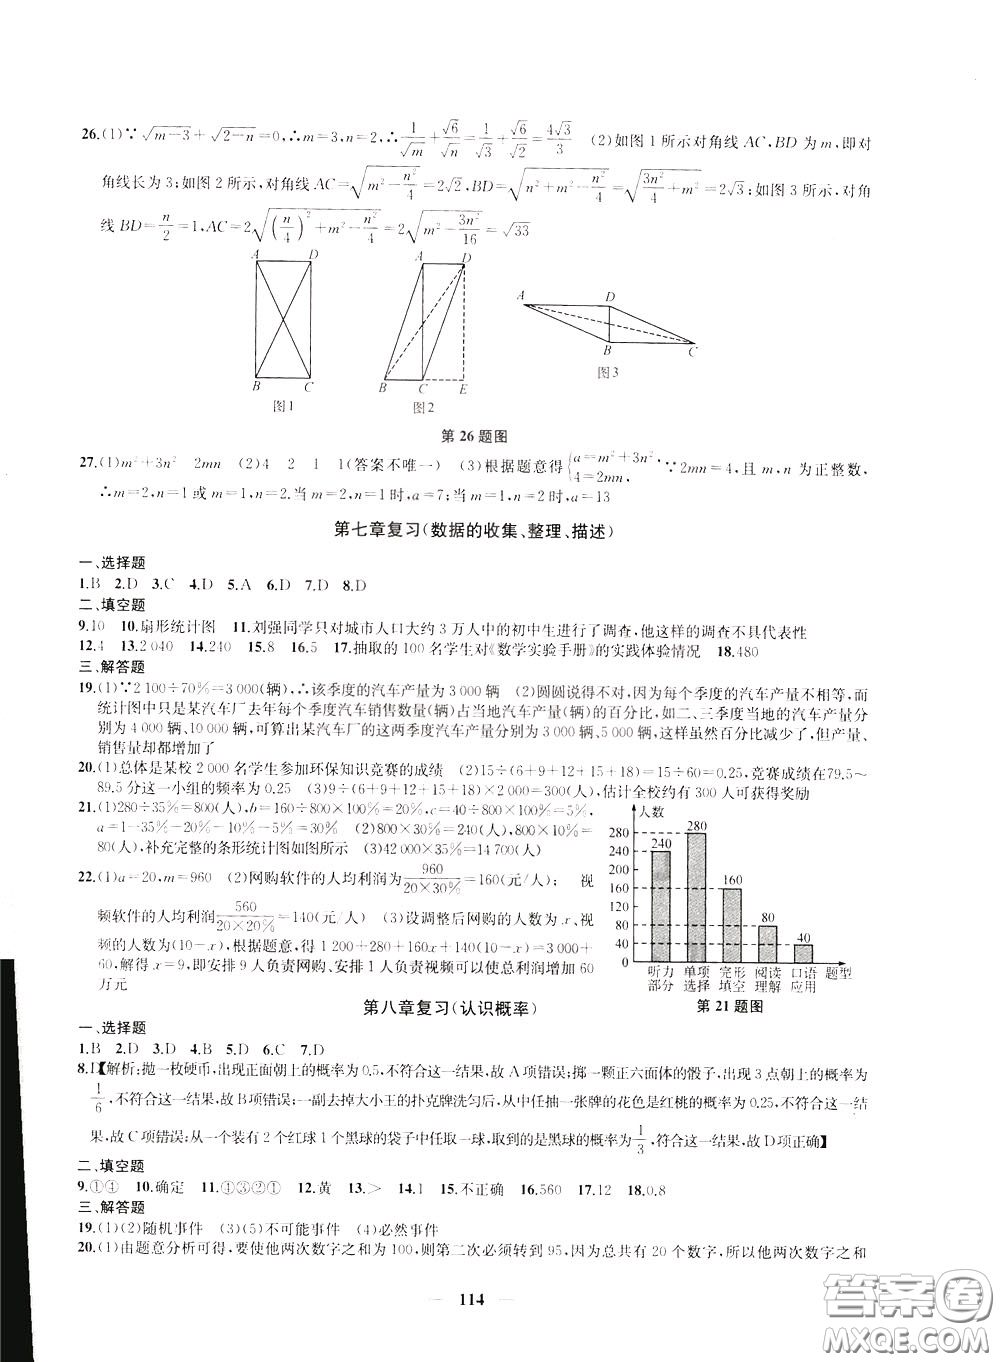 26.(1)∵√(m-3)+√(2-n)=0,∴m=3,n=2,∴1/√m+√6/√n=1/√3+√6/√2=4√3/3 (2)如图1所示对角线AC,BD为m,即对
角线长为3;如图2所示,对角线AC=√(m²-n²/4)=2√2,BD=√(n²+m²-n²/4)=√(3n²/4+m²)=2√3;如图3所示,对角
线BD=n/2=1,AC=2√((n/4)²+m²-n²/4)=2√(m²-3n²/16)=√33
A D
B C
图1
A D
B C E
图2
A D
B C
图3
第26题图
27.(1)m²+3n² 2mn (2)4 2 1 1(答案不唯一) (3)根据题意得{a=m²+3n², 4=2mn, ∵2mn=4,且m,n为正整数,
∴m=2,n=1或m=1,n=2.当m=2,n=1时,a=7;当m=1,n=2时,a=13
第七章复习(数据的收集、整理、描述)
一、选择题
1.B 2.D 3.C 4.D 5.A 6.D 7.D 8.D
二、填空题
9.10 10.扇形统计图 11.刘强同学只对城市人口大约3万人中的初中生进行了调查,他这样的调查不具代表性
12.4 13.2 040 14.240 15.8 16.5 17.抽取的100名学生对《数学实验手册》的实践体验情况 18.480
三、解答题
19.(1)∵2 100÷70%=3 000(辆),∴该季度的汽车产量为3 000辆 (2)圆圆说得不对,因为每个季度的汽车产量不相等,而
统计图中只是某汽车厂去年每个季度汽车销售数量(辆)占当地汽车产量(辆)的百分比,如二、三季度当地的汽车产量分
别为4 000辆、10 000辆,可算出某汽车厂的这两季度汽车产量分别为3 000、5 000辆,这样虽然百分比减少了,但产量、
销售量却都增加了
20.(1)总体是某校2 000名学生参加环保知识竞赛的成绩 (2)15÷(6+9+12+15+18)=15÷60=0.25,竞赛成绩在79.5~
89.5分这一小组的频率为0.25 (3)9÷(6+9+12+15+18)×2 000=300(人),估计全校约有300人可获得奖励
21.(1)280÷35%=800(人),b=160÷800×100%=20%,c=40÷800×100%=5%,
a=1-35%-20%-10%-5%=30% (2)800×30%=240(人),800×10%=
80(人),补充完整的条形统计图如图所示 (3)42 000×35%=14 700(人)
22.(1)a=20,m=960 (2)网购软件的人均利润为960/(20×30%)=160(元/人); 视
频软件的人均利润560/(20×20%)=140(元/人) (3)设调整后网购的人数为x、视
频的人数为(10-x),根据题意,得1 200+280+160x+140(10-x)=3 000+
60,解得x=9,即安排9人负责网购、安排1人负责视频可以使总利润增加60
万元
人数
280
240
200
160
120
80
40
0
240 280 160 80 40
听力 单项 完形 阅读 口语 题型
部分 选择 填空 理解 应用
第21题图
第八章复习(认识概率)
一、选择题
1.B 2.D 3.D 4.B 5.D 6.C 7.D
8.D【解析:抛一枚硬币,出现正面朝上的概率为0.5,不符合这一结果,故A项错误;掷一颗正六面体的骰子,出现3点朝上的概率为
1/6,不符合这一结果,故B项错误;一副去掉大小王的扑克牌洗匀后,从中任抽一张牌的花色是红桃的概率为0.25,不符合这一结
果,故C项错误;从一个装有2个红球1个黑球的袋子中任取一球,取到的是黑球的概率为1/3,符合这一结果,故D项正确】
二、填空题
9.①④ 10.确定 11.④③②① 12.黄 13.> 14.1 15.不正确 16.560 17.12 18.0.8
三、解答题
19.(1)(2)随机事件 (3)(5)不可能事件 (4)必然事件
20.(1)由题意分析可得,要使他两次数字之和为100,则第二次必须转到95,因为总共有20个数字,所以他两次数字之和
114
答案圈
MXQE.COM